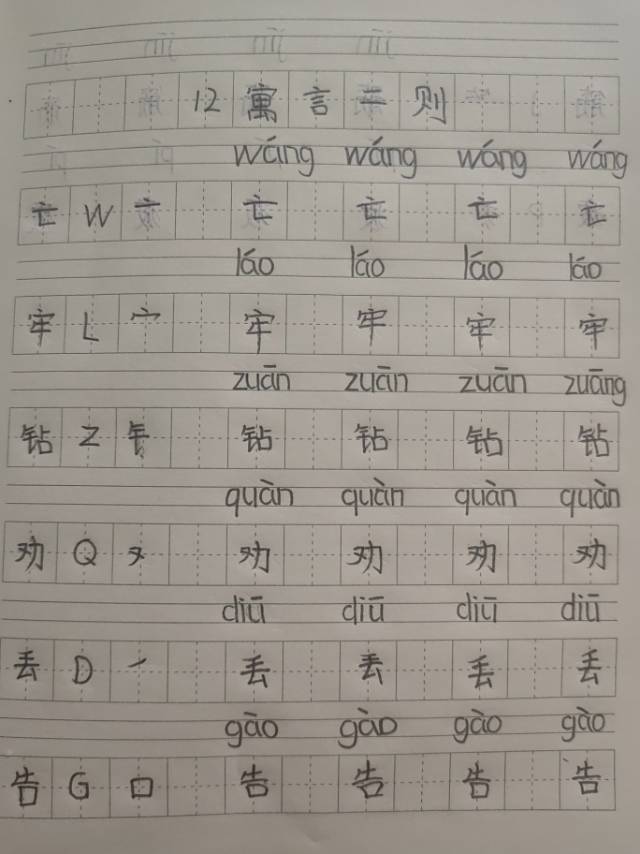 12 寓言二则
wáng wáng wáng wáng
亡 W 亠 亡 亡 亡 亡
láo láo láo láo
牢 L 宀 牢 牢 牢 牢
zuān zuān zuān zuāng
钻 Z 钅 钻 钻 钻 钻
quàn quàn quàn quàn
劝 Q 又 劝 劝 劝 劝
diū diū diū diū
丢 D 丿 丢 丢 丢 丢
gào gào gào gào
告 G 口 告 告 告 告